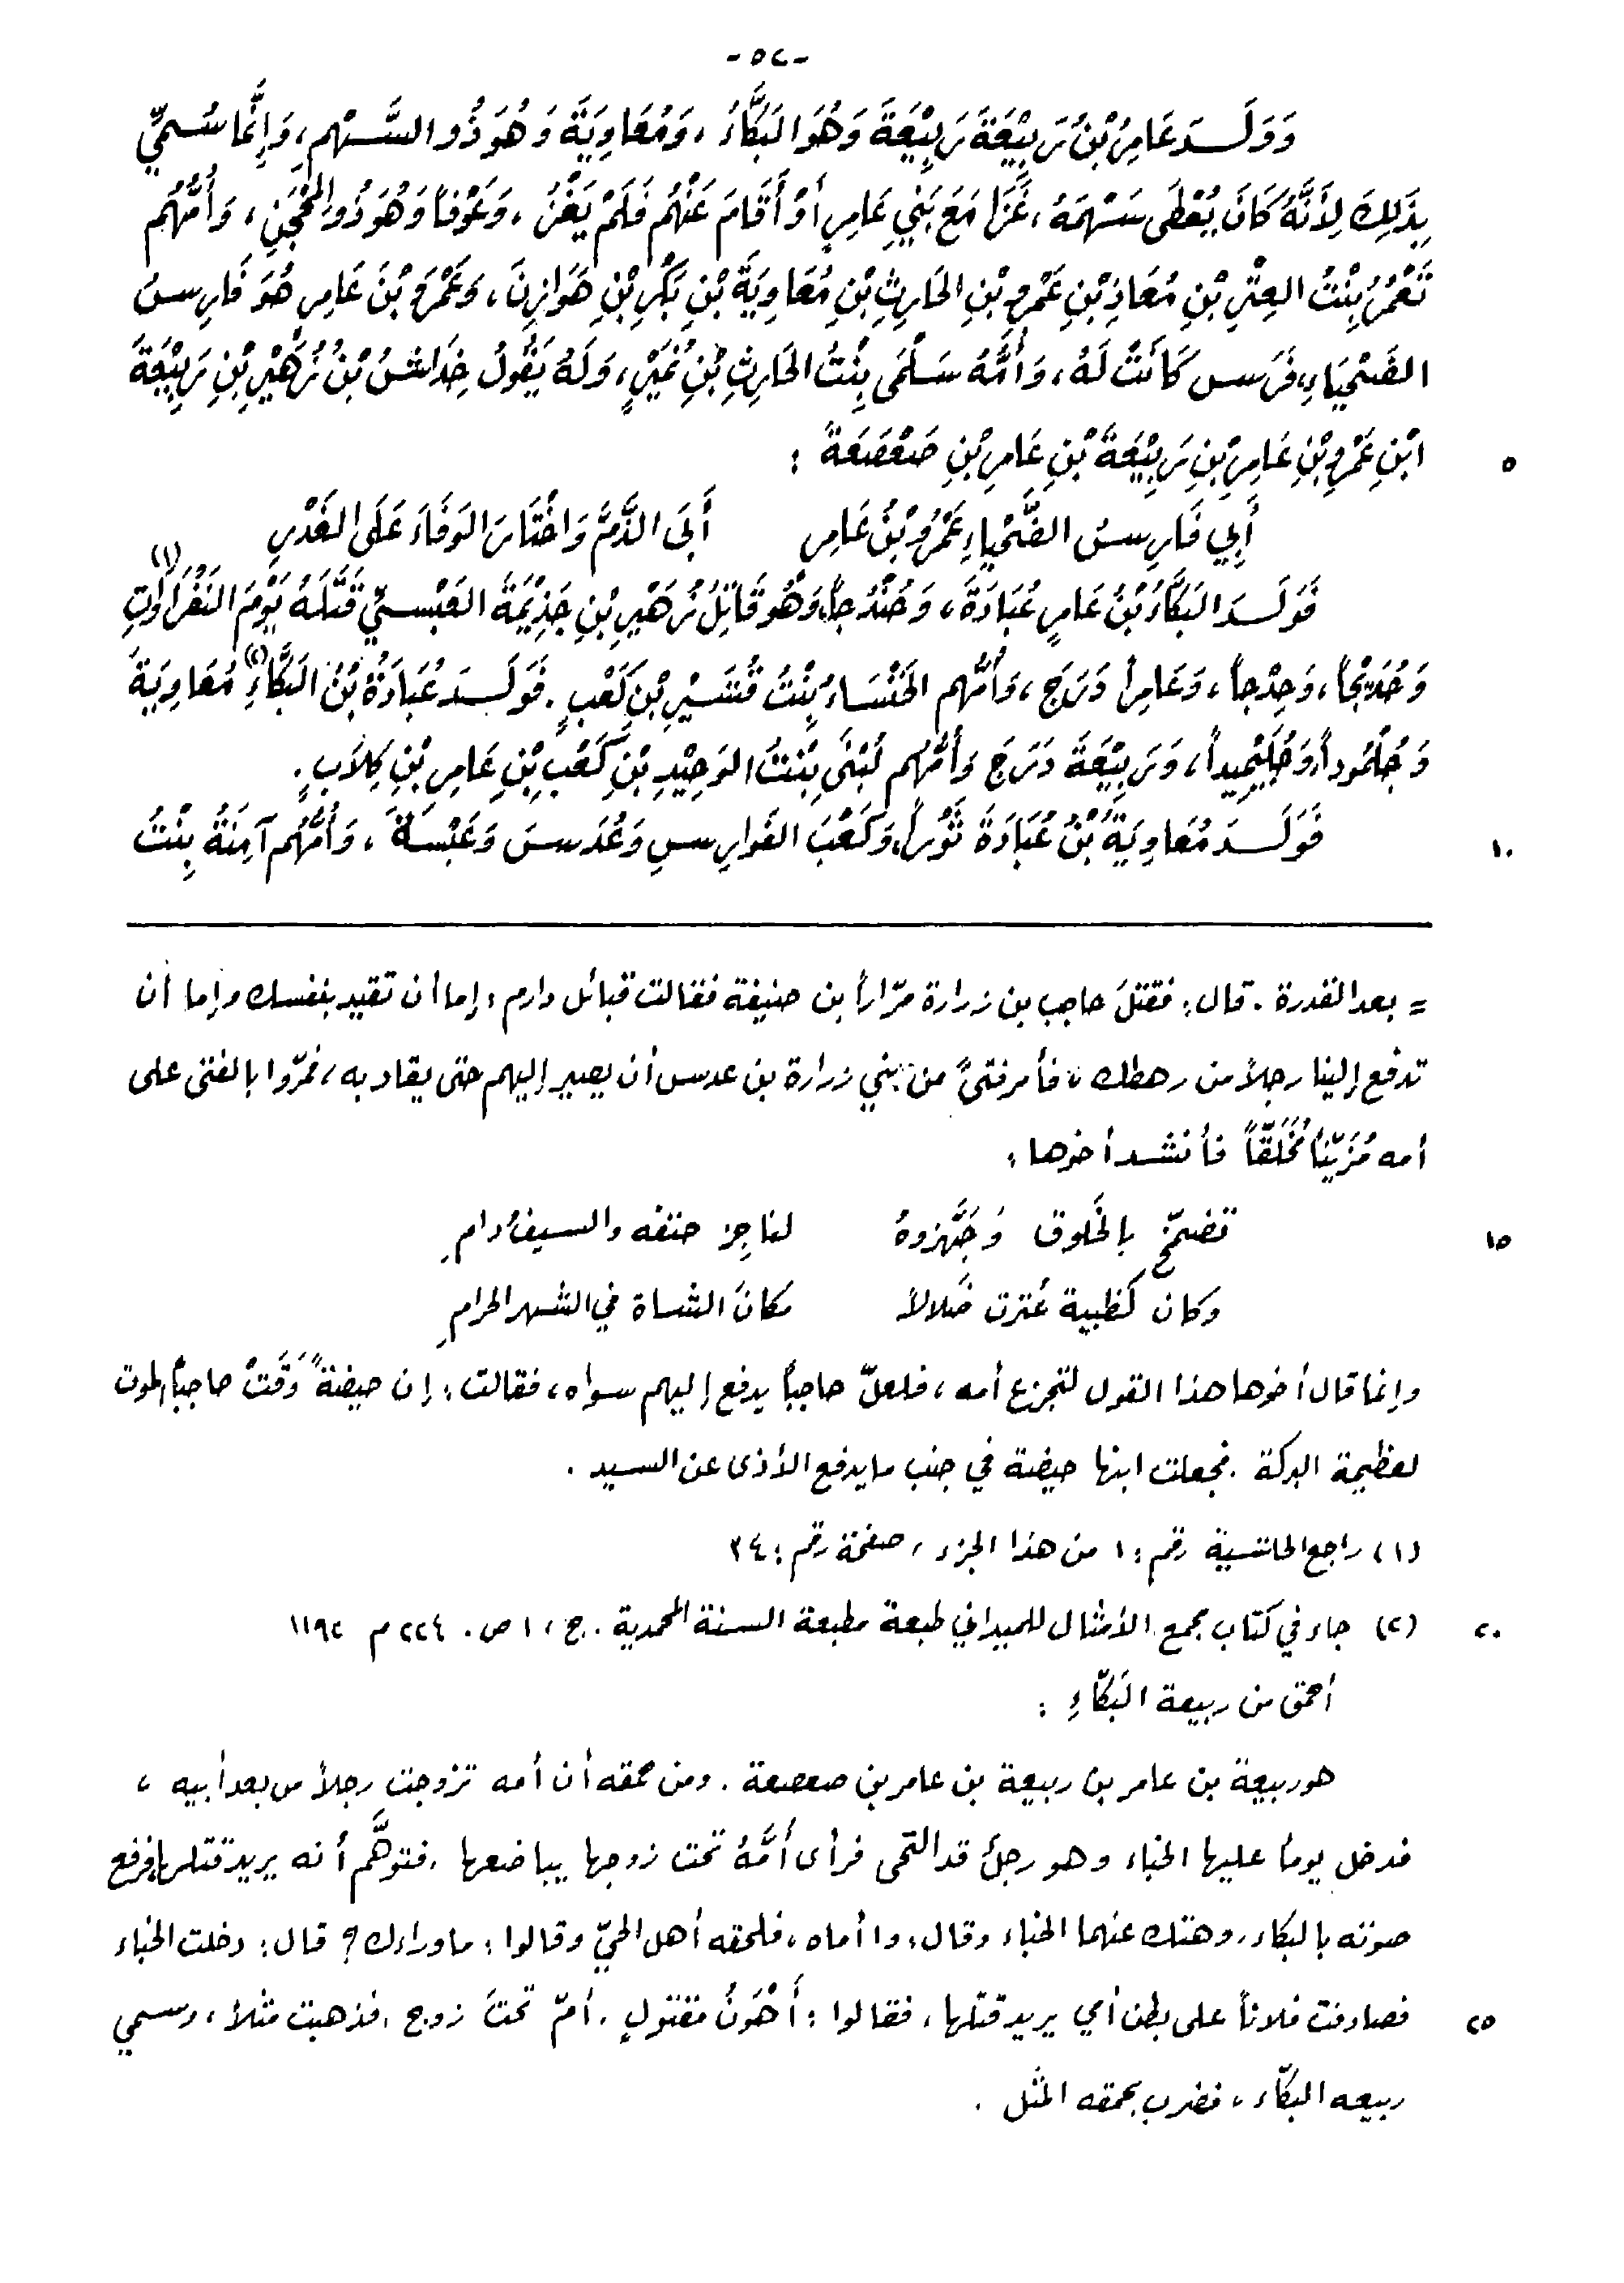 -٥٢-
وَوَلَدَ عَامِرُ بْنُ رَبِيْعَةَ رَبِيْعَةَ وَهُوَ البَكَّاءُ، وَمُعَاوِيَةَ وَهُوَ ذُو السَّهْمِ، وَإِنَّمَا سُمِّيَ
بِذَلِكَ لِأَنَّهُ كَانَ يُعْطَى سَهْمَهُ، غَزَا مَعَ بَنِي عَامِرٍ أَوْ أَقَامَ عَنْهُم فَلَمْ يَغْزُ، وَعَوْفاً وَهُوَ ذُو المِحْجَنِ، وَأُمُّهُم
تَعْمُرُ بِنْتُ العِتْرِ بْنِ مُعَاذِ بْنِ عَمْرِو بْنِ الحَارِثِ بْنِ مُعَاوِيَةَ بْنِ بَكْرِ بْنِ هَوَازِنَ، وَعَمْرَو بْنَ عَامِرٍ هُوَ فَارِسُ
الضَّحْيَاءِ، فَرَسٍ كَانَتْ لَهُ، وَأُمُّهُ سَلْمَى بِنْتُ الحَارِثِ بْنِ نُمَيْرٍ، وَلَهُ يَقُولُ خِدَاشُ بْنُ زُهَيْرِ بْنِ رَبِيْعَةَ
ابْنِ عَمْرِو بْنِ عَامِرِ بْنِ رَبِيْعَةَ بْنِ عَامِرِ بْنِ صَعْصَعَةَ : ٥
أَبِي فَارِسُ الضَّحْيَاءِ عَمْرُو بْنُ عَامِرٍ أَبَى الذَّمَّ وَاخْتَارَ الوَفَاءَ عَلَى الغَدْرِ
فَوَلَدَ البَكَّاءُ بْنُ عَامِرٍ عُبَادَةَ، وَحُنْدُجاً، وَهُوَ قَاتِلُ زُهَيْرِ بْنِ جَذِيْمَةَ العَبْسِيِّ قَتَلَهُ يَوْمَ النَّفْرَاوَاتِ (١)
وَحُدَيْجاً، وَحِدْجاً، وَعَامِراً دَرَجَ، وَأُمُّهُم الخَنْسَاءُ بِنْتُ قُشَيْرِ بْنِ كَعْبٍ. فَوَلَدَ عُبَادَةُ بْنُ البَكَّاءِ (٢) مُعَاوِيَةَ
وَجُلْمُوداً، وَجُلَيْمِيداً، وَرَبِيْعَةَ دَرَجَ وَأُمُّهُم لُبْنَى بِنْتُ الوَحِيْدِ بْنِ كَعْبِ بْنِ عَامِرِ بْنِ كِلاَبٍ.
فَوَلَدَ مُعَاوِيَةُ بْنُ عُبَادَةَ ثَوْراً، وَكَعْبَ الفَوَارِسِ وَعُدَسَ وَعَبْسَةَ، وَأُمُّهُم آمِنَةُ بِنْتُ ١٠
= بعد القدرة . قال: فقتلَ حاجب بن زرارة مرّاراً بن حنيفة فقالت قبائل دارم: إما أن تقيد بنفسك وإما أن
تدفع إلينا رجلاً من رهطك، فأمر فتىً من بني زرارة بن عدس أن يصير إليهم حتى يقاد به، فمرّوا بالفتى على
أمه مُزَيّناً مُخَلَّقاً فأنشد أخوها :
تضمّخ بالخَلوق وَجَهَّزوهُ لناجِز حتفه والسيفُ دامِ ١٥
وكان كظبية عُترت ضَلالاً مكانَ الشاة في الشهر الحرامِ
وإنما قال أخوها هذا القول لتجزع أمه، فلعلّ حاجباً يدفع إليهم سواه، فقالت : إن حيضةً وَقَتْ حاجباً الموت
لعظيمة البركة . فجعلت ابنها حيضة في جنب ما يدفع الأذى عن السيد .
(١) راجع الحاشية رقم: ١ من هذا الجزء، صفحة رقم : ٣٤
(٢) جاء في كتاب مجمع الأمثال للميداني طبعة مطبعة السنة المحمدية . ج، ١ ص. ٢٢٤ م ١١٩٢ ٢٠
أحمق من ربيعة البَكّاءِ :
هو ربيعة بن عامر بن ربيعة بن عامر بن صعصعة . ومن حمقه أن أمه تزوجت رجلاً من بعد أبيه ،
فدخل يوماً عليها الخباء وهو رجلٌ قد التحى فرأى أُمَّهُ تحت زوجها يباضعها ، فتوهَّم أنه يريد قتلها، فرفع
صوته بالبكاء، وهتك عنهما الخباء وقال، وا أماه، فلحقه أهل الحيّ وقالوا: ما وراءك ؟ قال: دخلت الخباء
فصادفت فلاناً على بطن أمي يريد قتلها، فقالوا : أَهْوَنُ مقتولٍ . أمّ تحتَ زوج . فذهبت مثلاً، وسمي ٢٥
ربيعه البكّاء، فضرب بحمقه المثل .